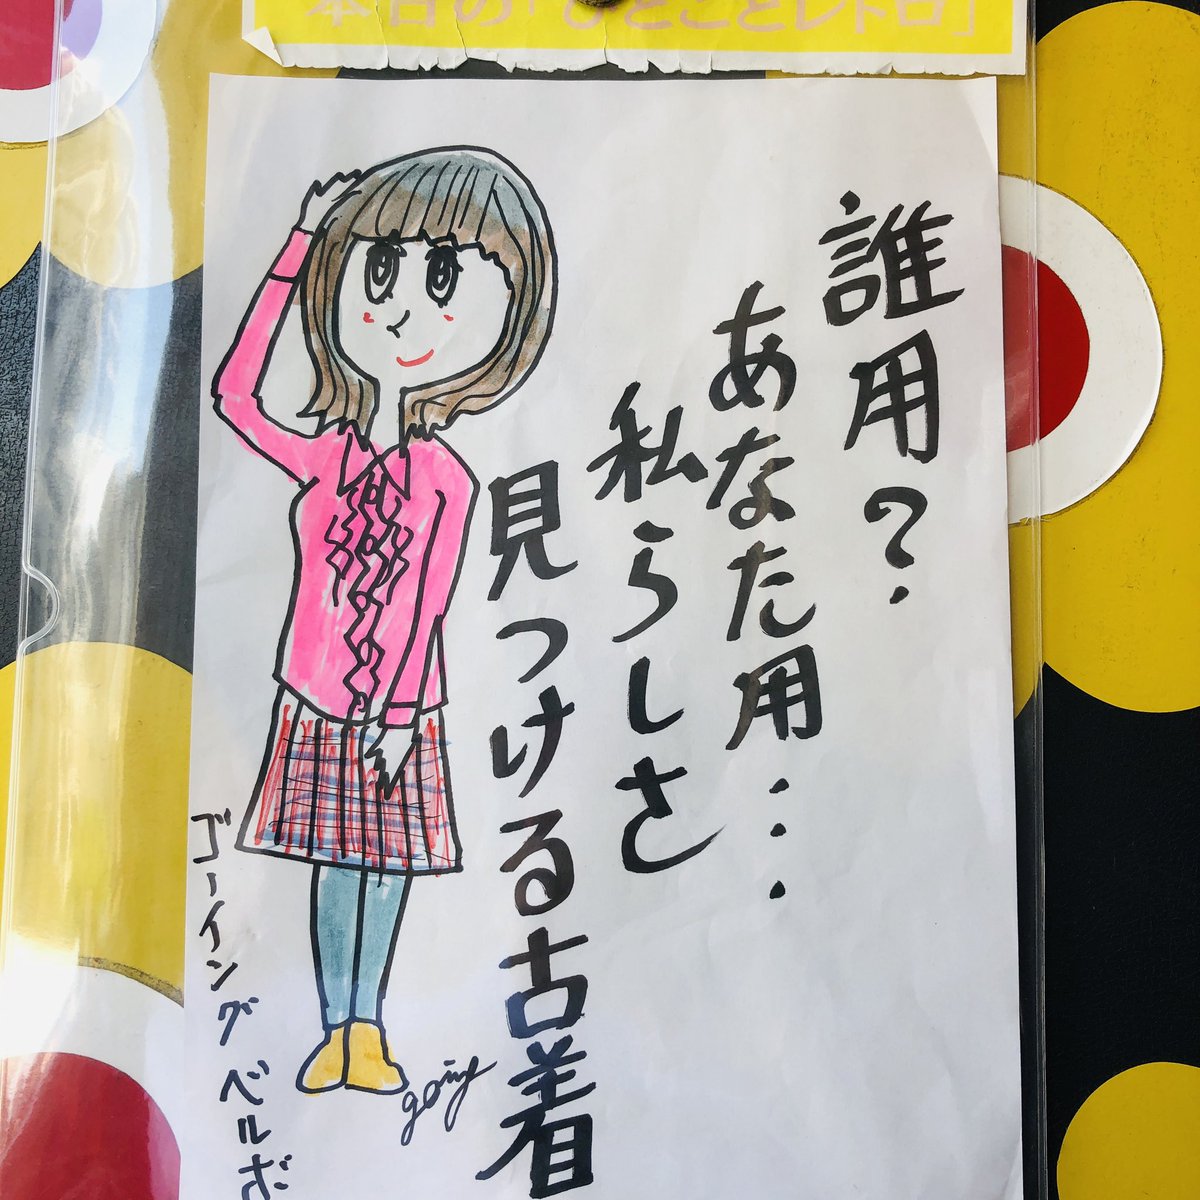 本日の「ひとことレトロ」
誰用?
あなた用・・・
私らしさ
見つける古着
going
ゴーイングベルボ